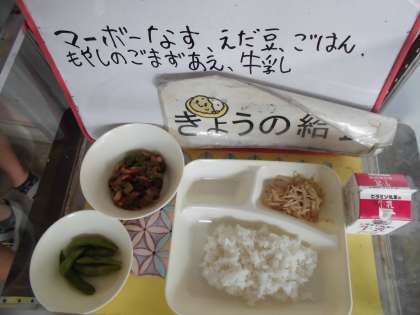 マーボーなす、えだ豆、ごはん、
もやしのごまずあえ、牛乳
きょうの給
牛乳